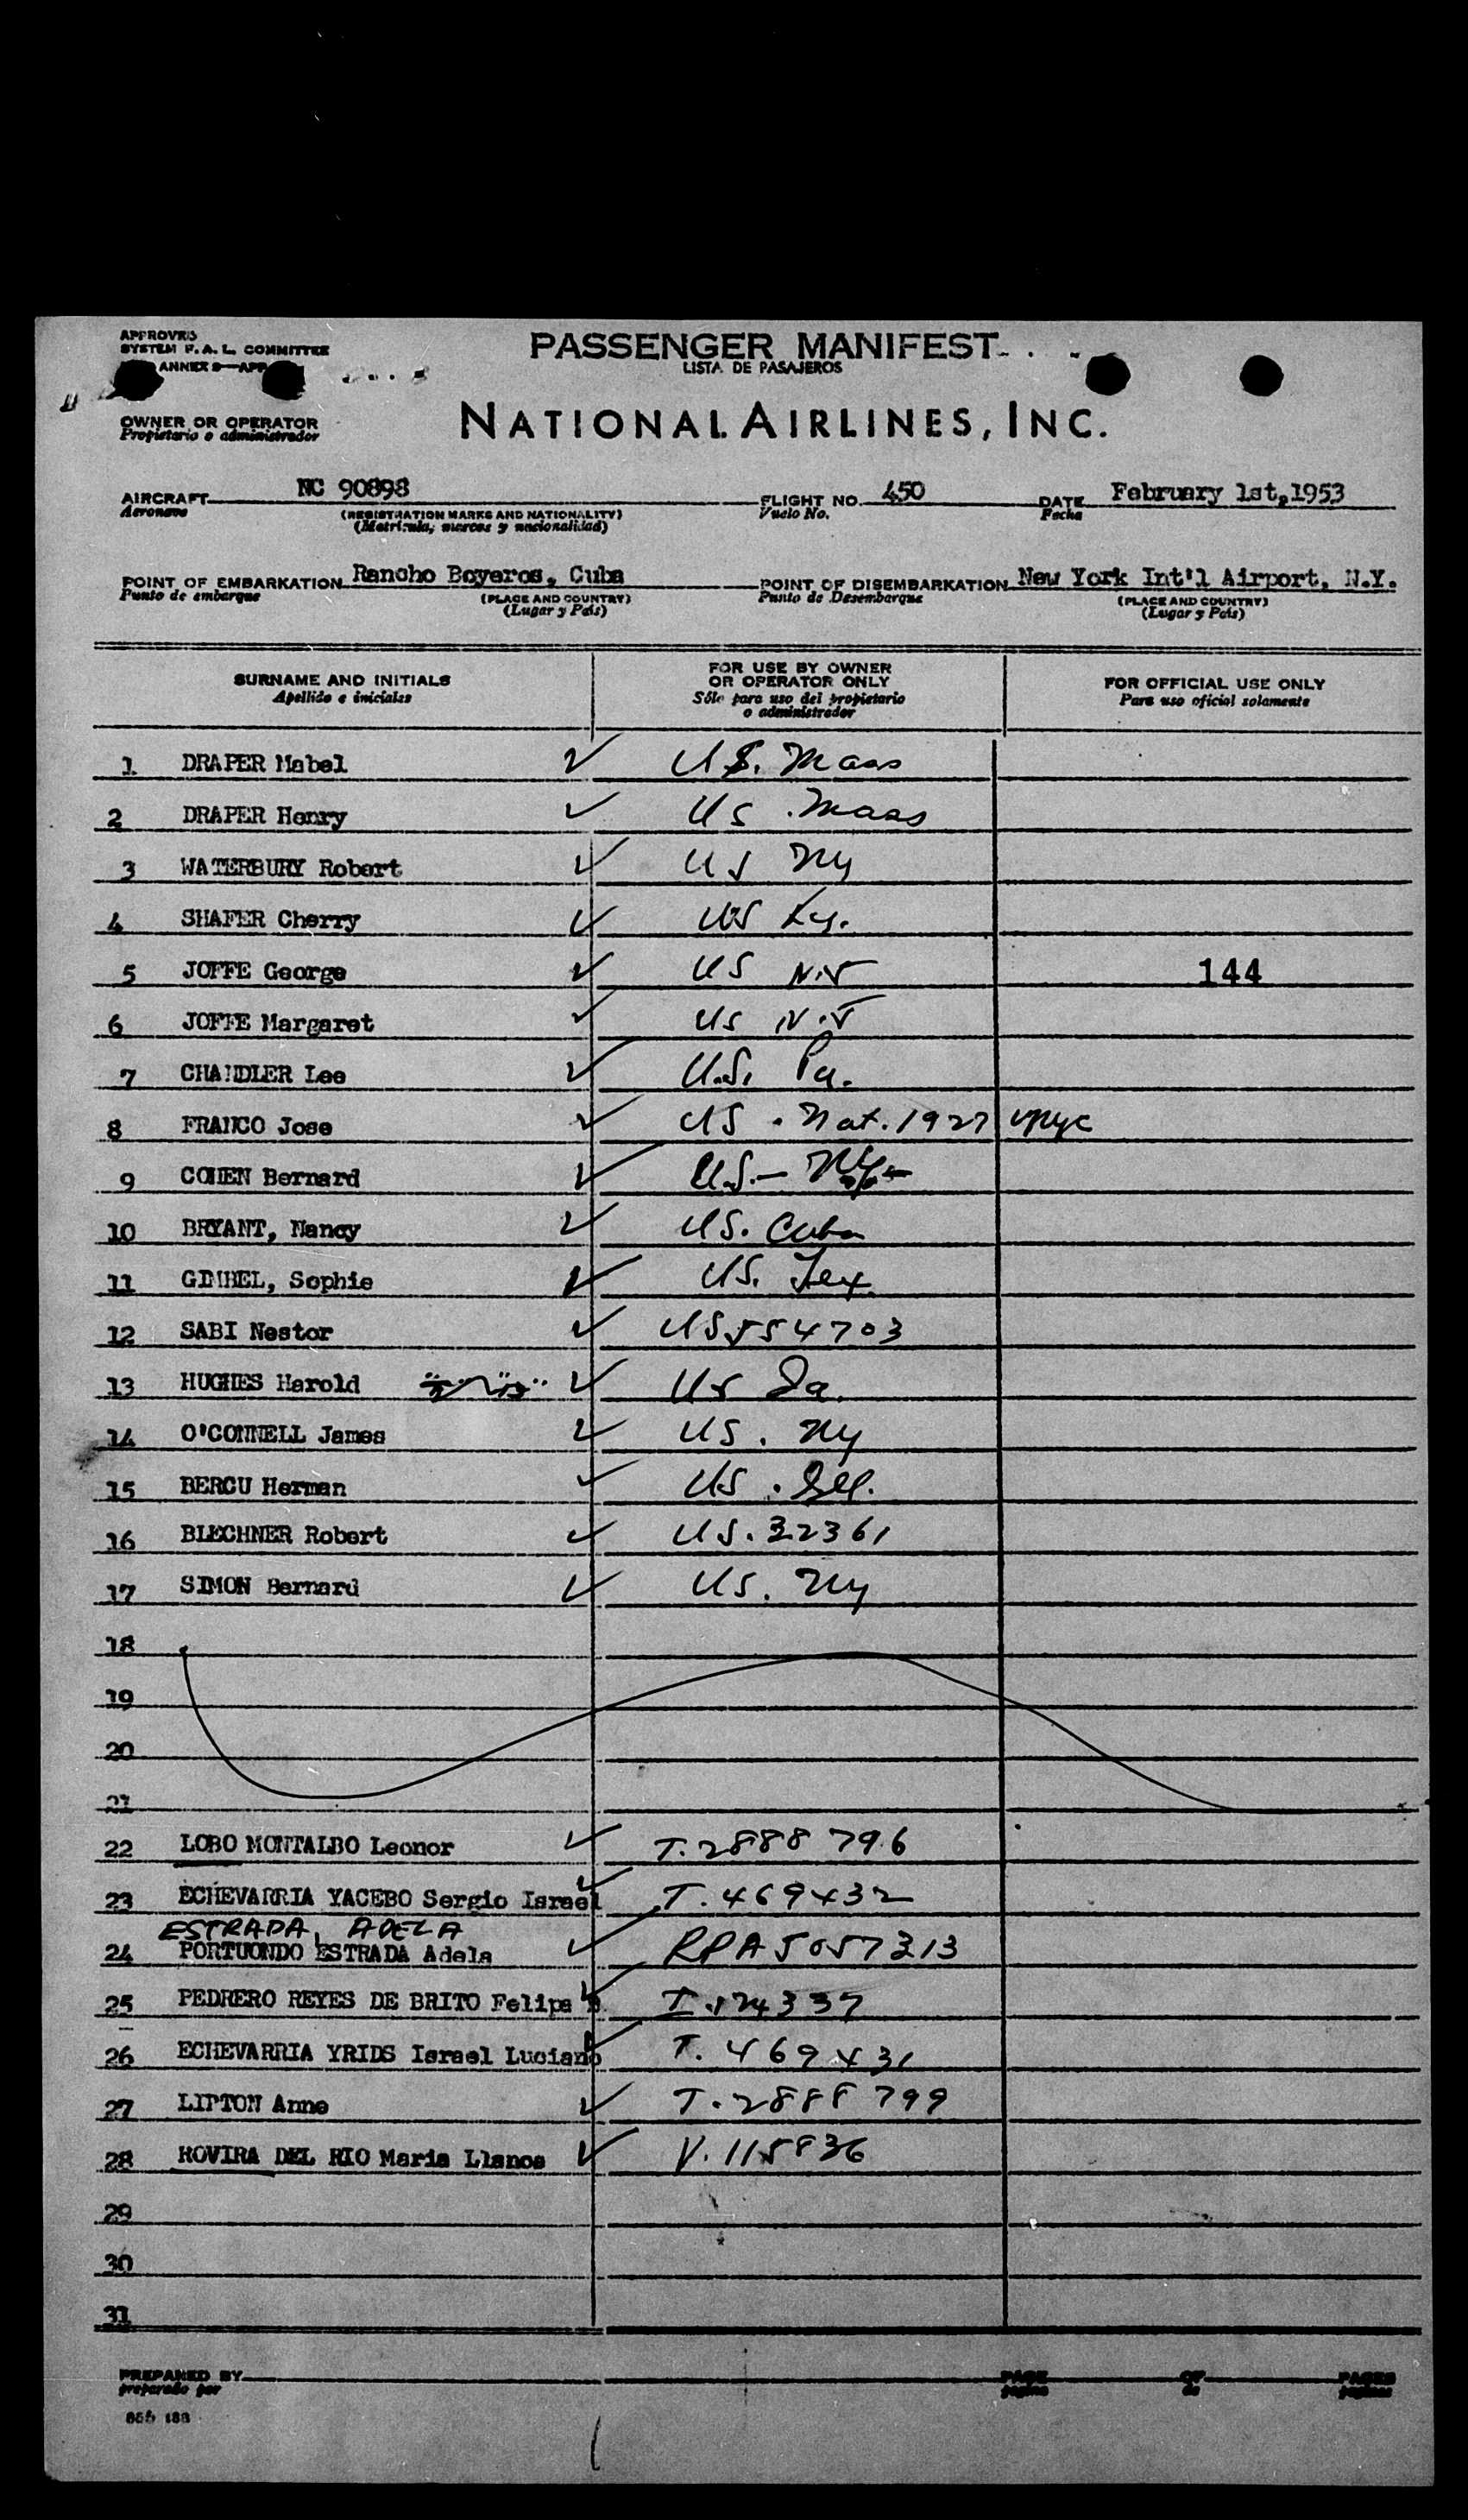 APPROVED
SYSTEM F. A. L. COMMITTEE
ANNEX 9—APP
PASSENGER MANIFEST
LISTA DE PASAJEROS
OWNER OR OPERATOR
Propietario o administrador
NATIONAL AIRLINES, INC.
AIRCRAFT NC 90898 FLIGHT NO. 450 DATE February 1st,1953
Aeronave (REGISTRATION MARKS AND NATIONALITY) Vuelo No. Fecha
(Matrícula, marcas y nacionalidad)
POINT OF EMBARKATION Rancho Boyeros, Cuba POINT OF DISEMBARKATION New York Int'l Airport, N.Y.
Punto de embarque (PLACE AND COUNTRY) Punto de Desembarque (PLACE AND COUNTRY)
(Lugar y País) (Lugar y País)
SURNAME AND INITIALS
Apellido e iniciales
FOR USE BY OWNER
OR OPERATOR ONLY
Sólo para uso del propietario
o administrador
FOR OFFICIAL USE ONLY
Para uso oficial solamente
1 DRAPER Mabel ✓ U.S. Mass
2 DRAPER Henry ✓ US . Mass
3 WATERBURY Robert ✓ US NY
4 SHAFER Cherry ✓ US Ky.
5 JOFFE George ✓ US N.J 144
6 JOFFE Margaret ✓ US N.J
7 CHANDLER Lee ✓ U.S. Pa.
8 FRANCO Jose ✓ US . Nat. 1927 NYC
9 COHEN Bernard ✓ U.S.— NY
10 BRYANT, Nancy ✓ US. Cuba
11 GIMBEL, Sophie ✓ US. Tex.
12 SABI Nestor ✓ US 554703
13 HUGHES Harold ✓ US
14 O'CONNELL James ✓ US . NY
15 BERCU Herman ✓ US . Ill.
16 BLECHNER Robert ✓ US. 32361
17 SIMON Bernard ✓ US. NY
18
19
20
21
22 LOBO MONTALBO Leonor ✓ T. 2888 796
23 ECHEVARRIA YACEBO Sergio Israel ✓ T. 469432
ESTRADA, ADELA
24 PORTUONDO ESTRADA Adela ✓ RPA 5057313
25 PEDRERO REYES DE BRITO Felipa ✓ I. 174337
26 ECHEVARRIA YRIDS Israel Luciano ✓ T. 469431
27 LIPTON Anne ✓ T. 2888 799
28 ROVIRA DEL RIO Maria Llanos ✓ V. 115836
29
30
31
PREPARED BY PAGE OF PAGES
preparado por página de páginas